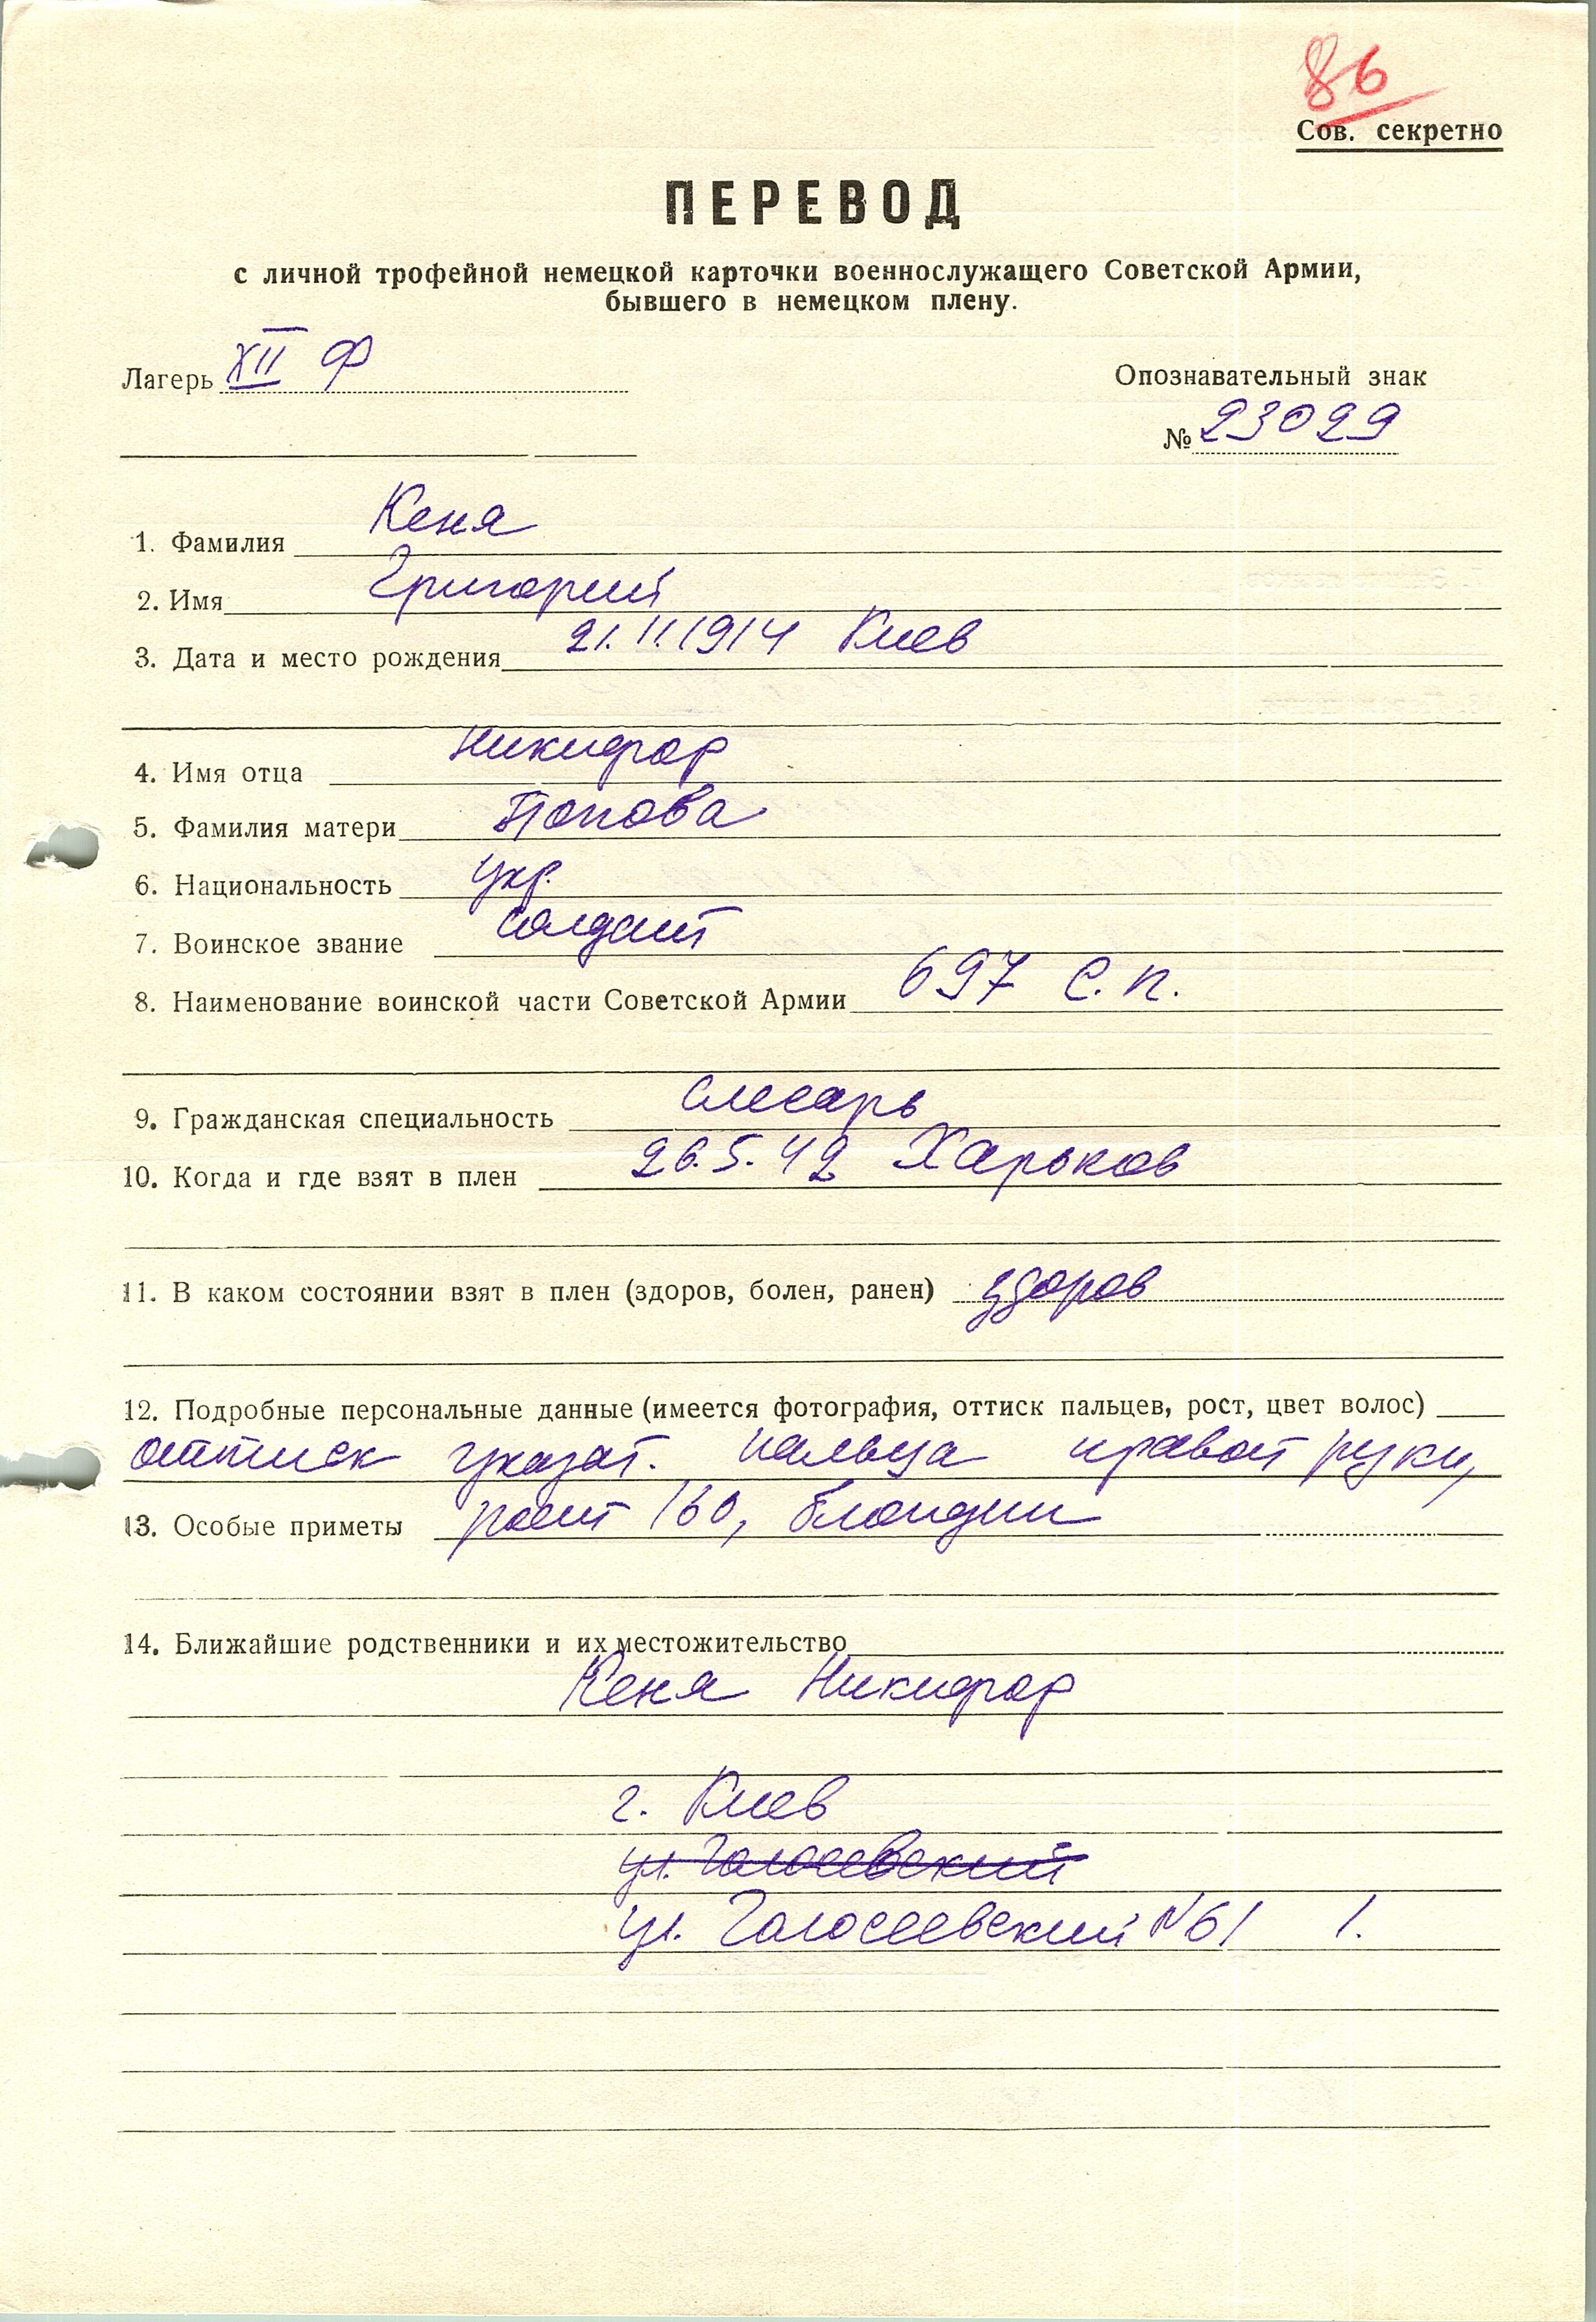 86
Сов. секретно
ПЕРЕВОД
с личной трофейной немецкой карточки военнослужащего Советской Армии,
бывшего в немецком плену.
Лагерь XII Ф
Опознавательный знак
№ 23029
1. Фамилия Кеня
2. Имя Григорий
3. Дата и место рождения 21.11.1914 Киев
4. Имя отца Никифор
5. Фамилия матери Попова
6. Национальность укр.
7. Воинское звание солдат
8. Наименование воинской части Советской Армии 697 с.п.
9. Гражданская специальность слесарь
10. Когда и где взят в плен 26.5.42 Харьков
11. В каком состоянии взят в плен (здоров, болен, ранен) здоров
12. Подробные персональные данные (имеется фотография, оттиск пальцев, рост, цвет волос)
оттиск указат. пальца правой руки,
13. Особые приметы рост 160, блондин
14. Ближайшие родственники и их местожительство
Кеня Никифор
г. Киев
ул. Голосеевский
ул. Голосеевский N61 1.